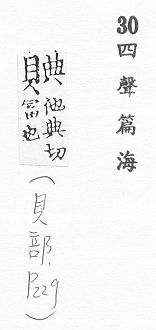 30四聲篇海
賟他典切
富也
(貝部, P229)